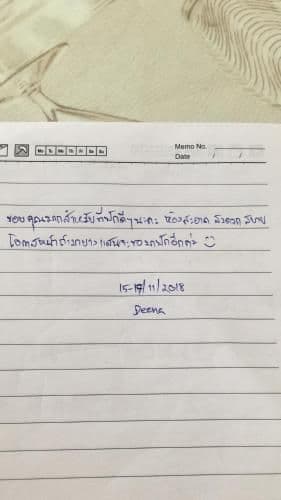 Mo Tu We Th Fr Sa Su
Memo No.
Date / /
ขอบคุณมากสำหรับที่พักดีๆนะคะ ห้องสะอาด สะดวก สบาย
โอกาสหน้าถ้ามาบางแสนจะขอมาพักอีกค่ะ
15-17/11/2018
Deena